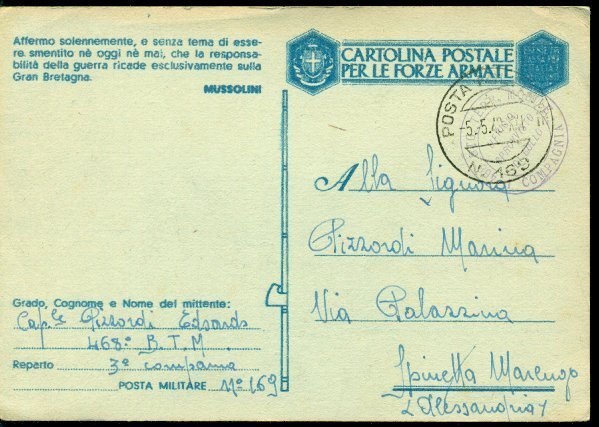 Affermo solennemente, e senza tema di esse-
re smentito nè oggi nè mai, che la responsa-
bilità della guerra ricade esclusivamente sulla
Gran Bretagna.
MUSSOLINI
CARTOLINA POSTALE
PER LE FORZE ARMATE
POSTA
-5.5.42
N. 169
COMPAGNIA
Alla Signora
Pizzordi Marina
Via Palazzina
Spinetta Marengo
(Alessandria)
Grado, Cognome e Nome del mittente:
Cap.le Pizzordi Edoardo
468° B.T.M.
Reparto 3ª compania
POSTA MILITARE N° 169